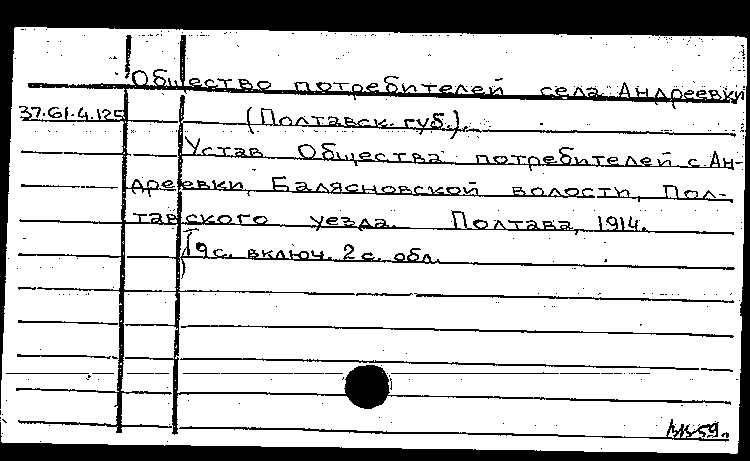 Общество потребителей села Андреевки
37.61.4.125 (Полтавск. губ.).
Устав Общества потребителей с. Ан-
дреевки, Балясновской волости, Пол-
тавского уезда. Полтава, 1914.
19 с. включ. 2 с. обл.